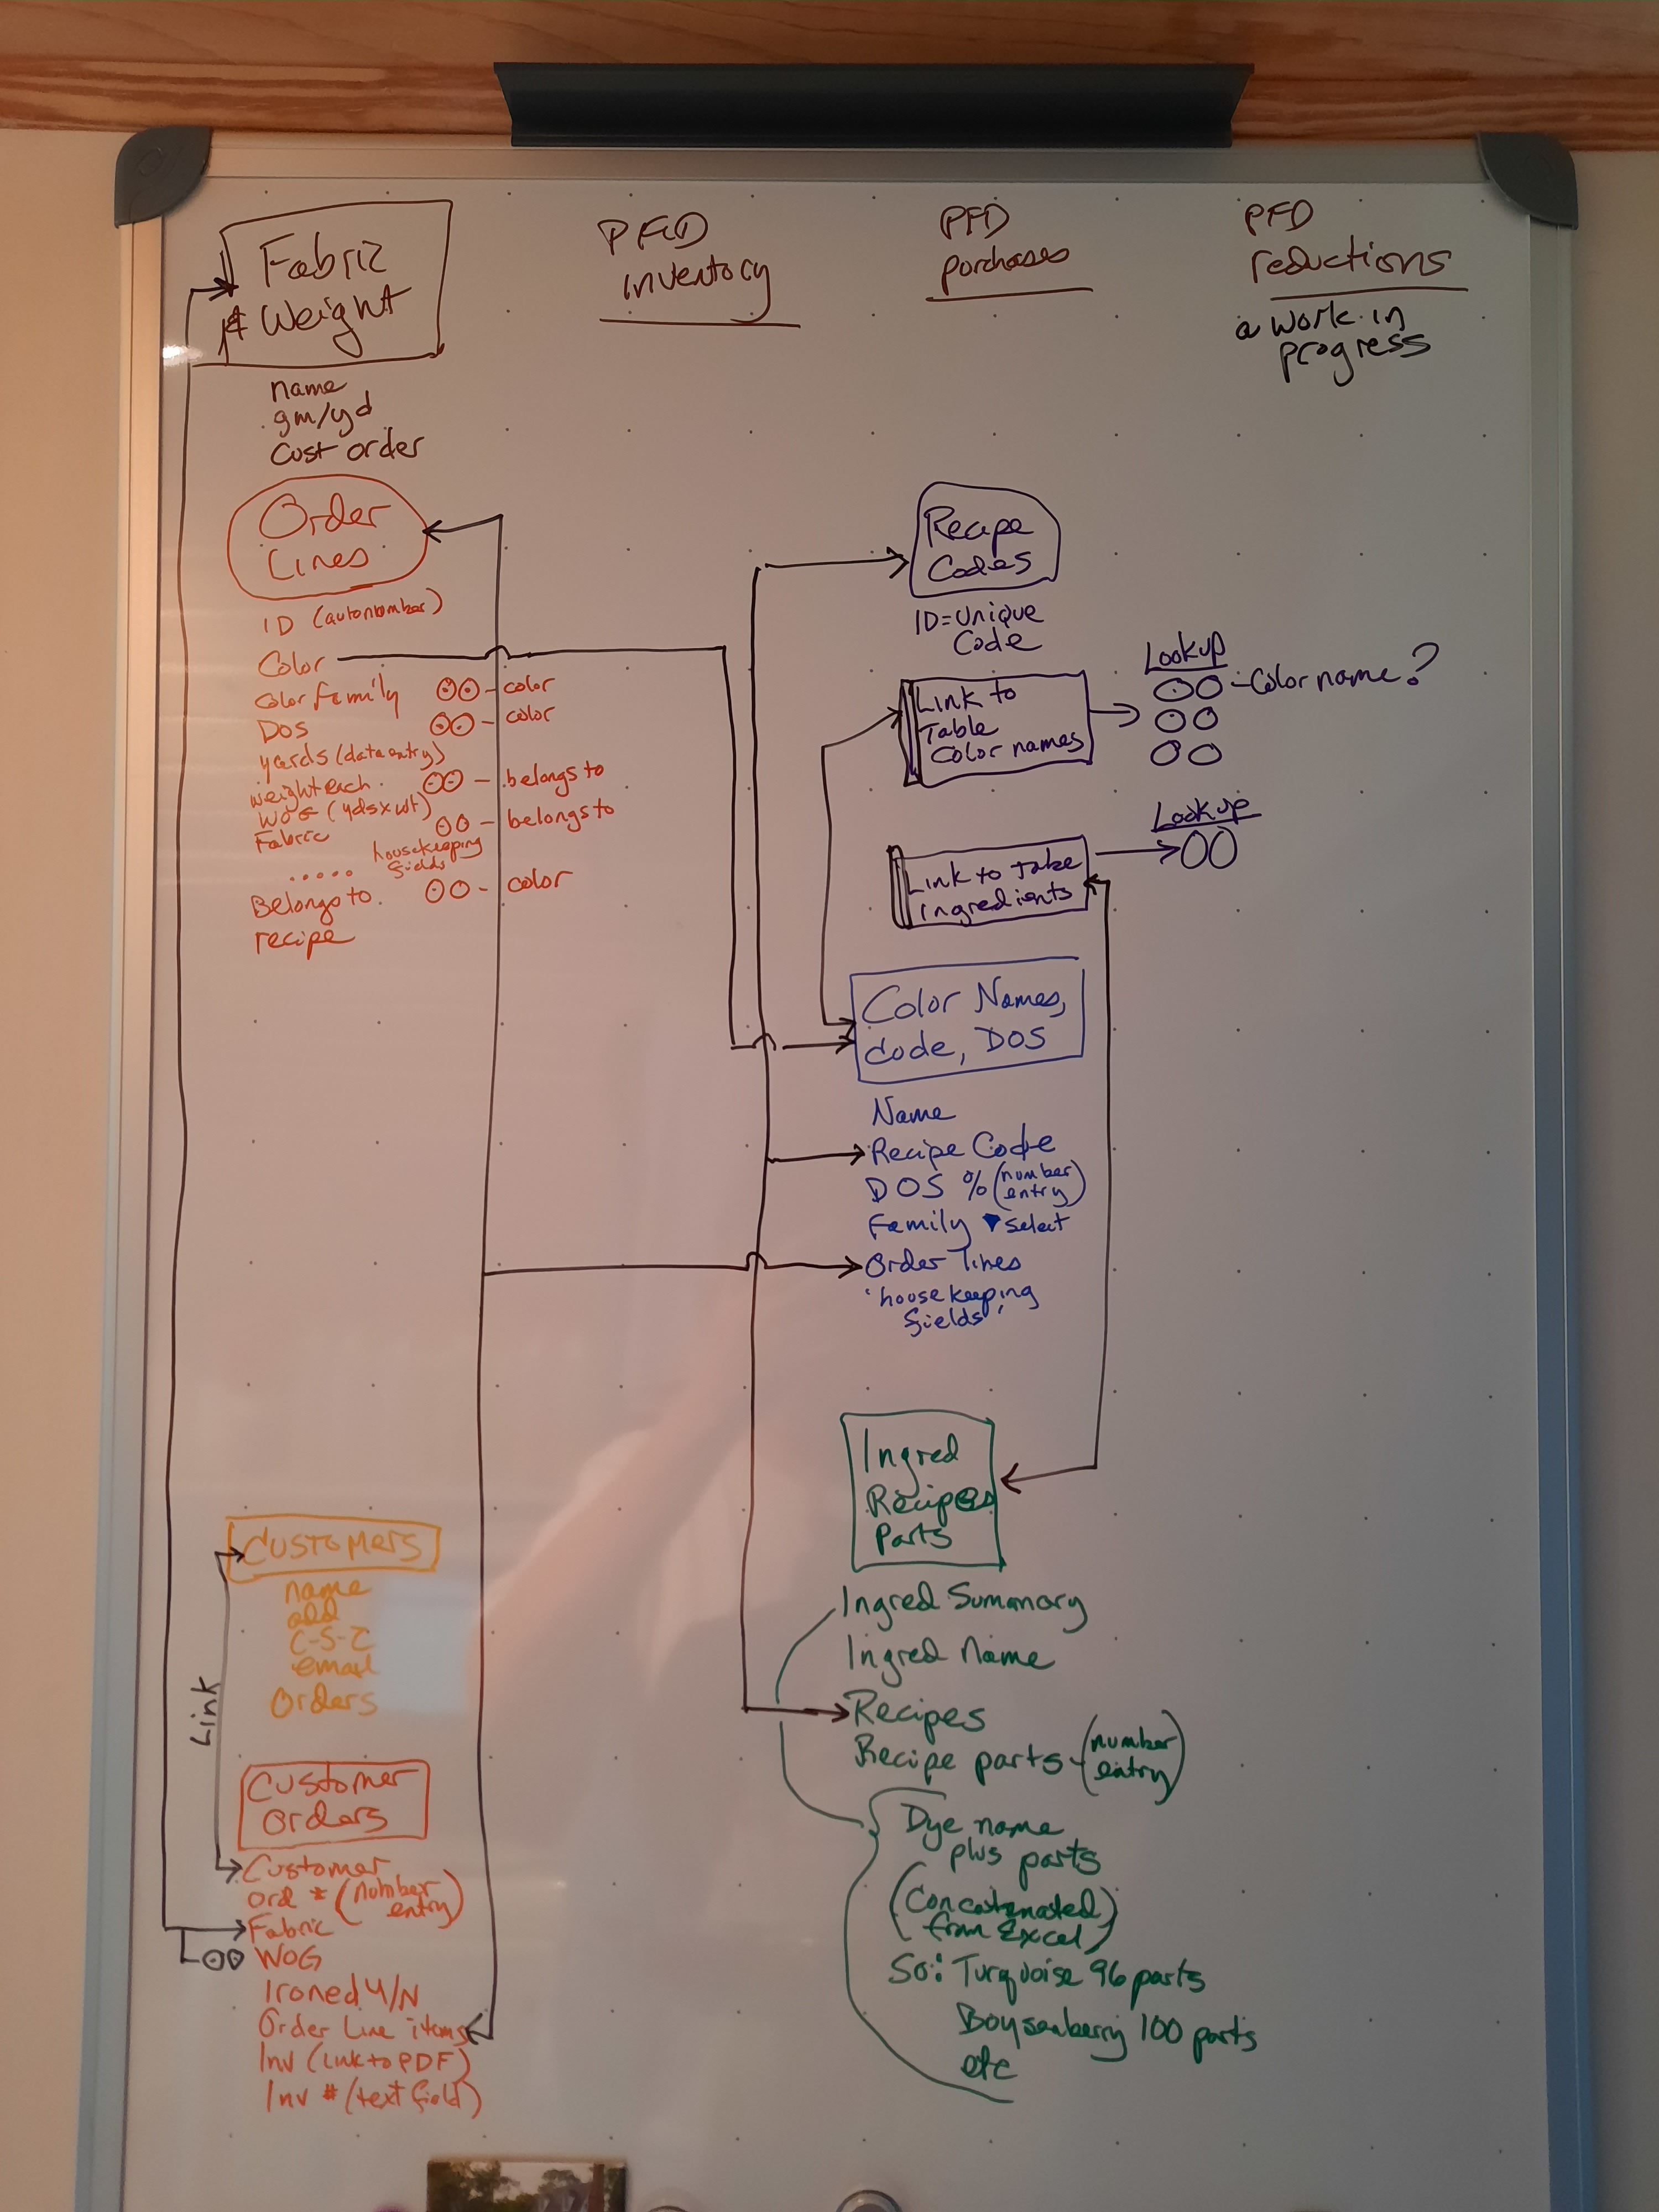 Fabric
& Weight
name
gm/yd
cust order
PFD
inventory
PFD
purchases
PFD
reductions
a work in
progress
Order
Lines
ID (autonumber)
Color
Color family - color
DOS - color
yards (data entry)
weight each - belongs to
WOG (yds x wt)
Fabric - belongs to
..... housekeeping
fields
Belongs to - color
recipe
Recipe
Codes
ID = Unique
Code
Link to
Table
Color names
Lookup
- Color name?
Link to table
ingredients
Lookup
Color Names,
Code, DOS
Name
Recipe Code
DOS % (number
entry)
Family ▼ select
Order lines
'housekeeping
fields'
Ingred
Recipes
Parts
Ingred Summary
Ingred Name
Recipes
Recipe parts - (number
entry)
Dye name
plus parts
(Concatenated
from Excel)
So: Turquoise 96 parts
Boysenberry 100 parts
etc
Customers
name
add
C-S-Z
email
Orders
Link
Customer
Orders
Customer
Ord # (number
entry)
Fabric
WOG
Ironed Y/N
Order Line items
Inv (link to PDF)
Inv # (text field)